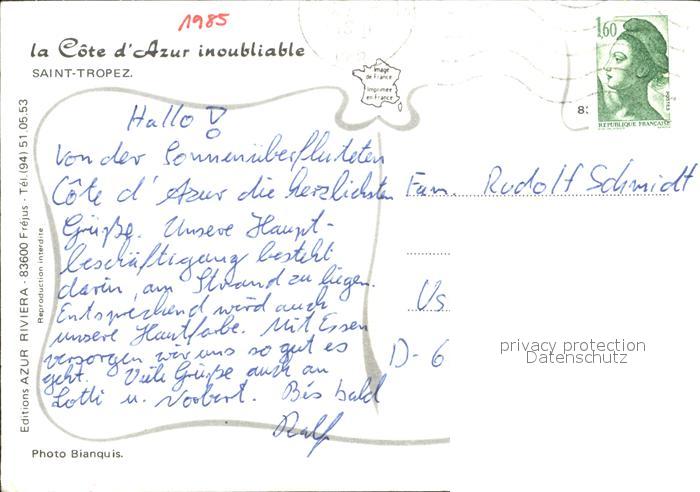 1985
la Côte d'Azur inoubliable
SAINT-TROPEZ.
Image
de France
Imprimée
en France
1,60
POSTES
REPUBLIQUE FRANÇAISE
8:
Hallo!
Von der Sonnenüberfluteten
Côte d'Azur die herzlichsten
Grüße. Unsere Haupt-
beschäftigung besteht
darin, am Strand zu liegen.
Entsprechend wird auch
unsere Hautfarbe. Mit Essen
versorgen wir uns so gut es
geht. Viele Grüße auch an
Lotti u. Norbert. Bis bald
Ralf
Fam. Rudolf Schmidt
Us
D-6
privacy protection
Datenschutz
Editions AZUR RIVIERA - 83600 Fréjus - Tél. (94) 51.05.53
Reproduction interdite
Photo Bianquis.